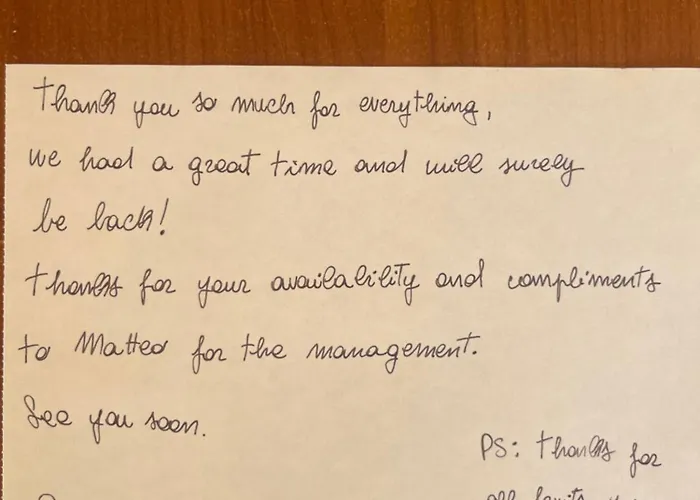 Thank you so much for everything,
we had a great time and will surely
be back!
Thanks for your availability and compliments
to Matteo for the management.
See you soon.
PS: thanks for
all